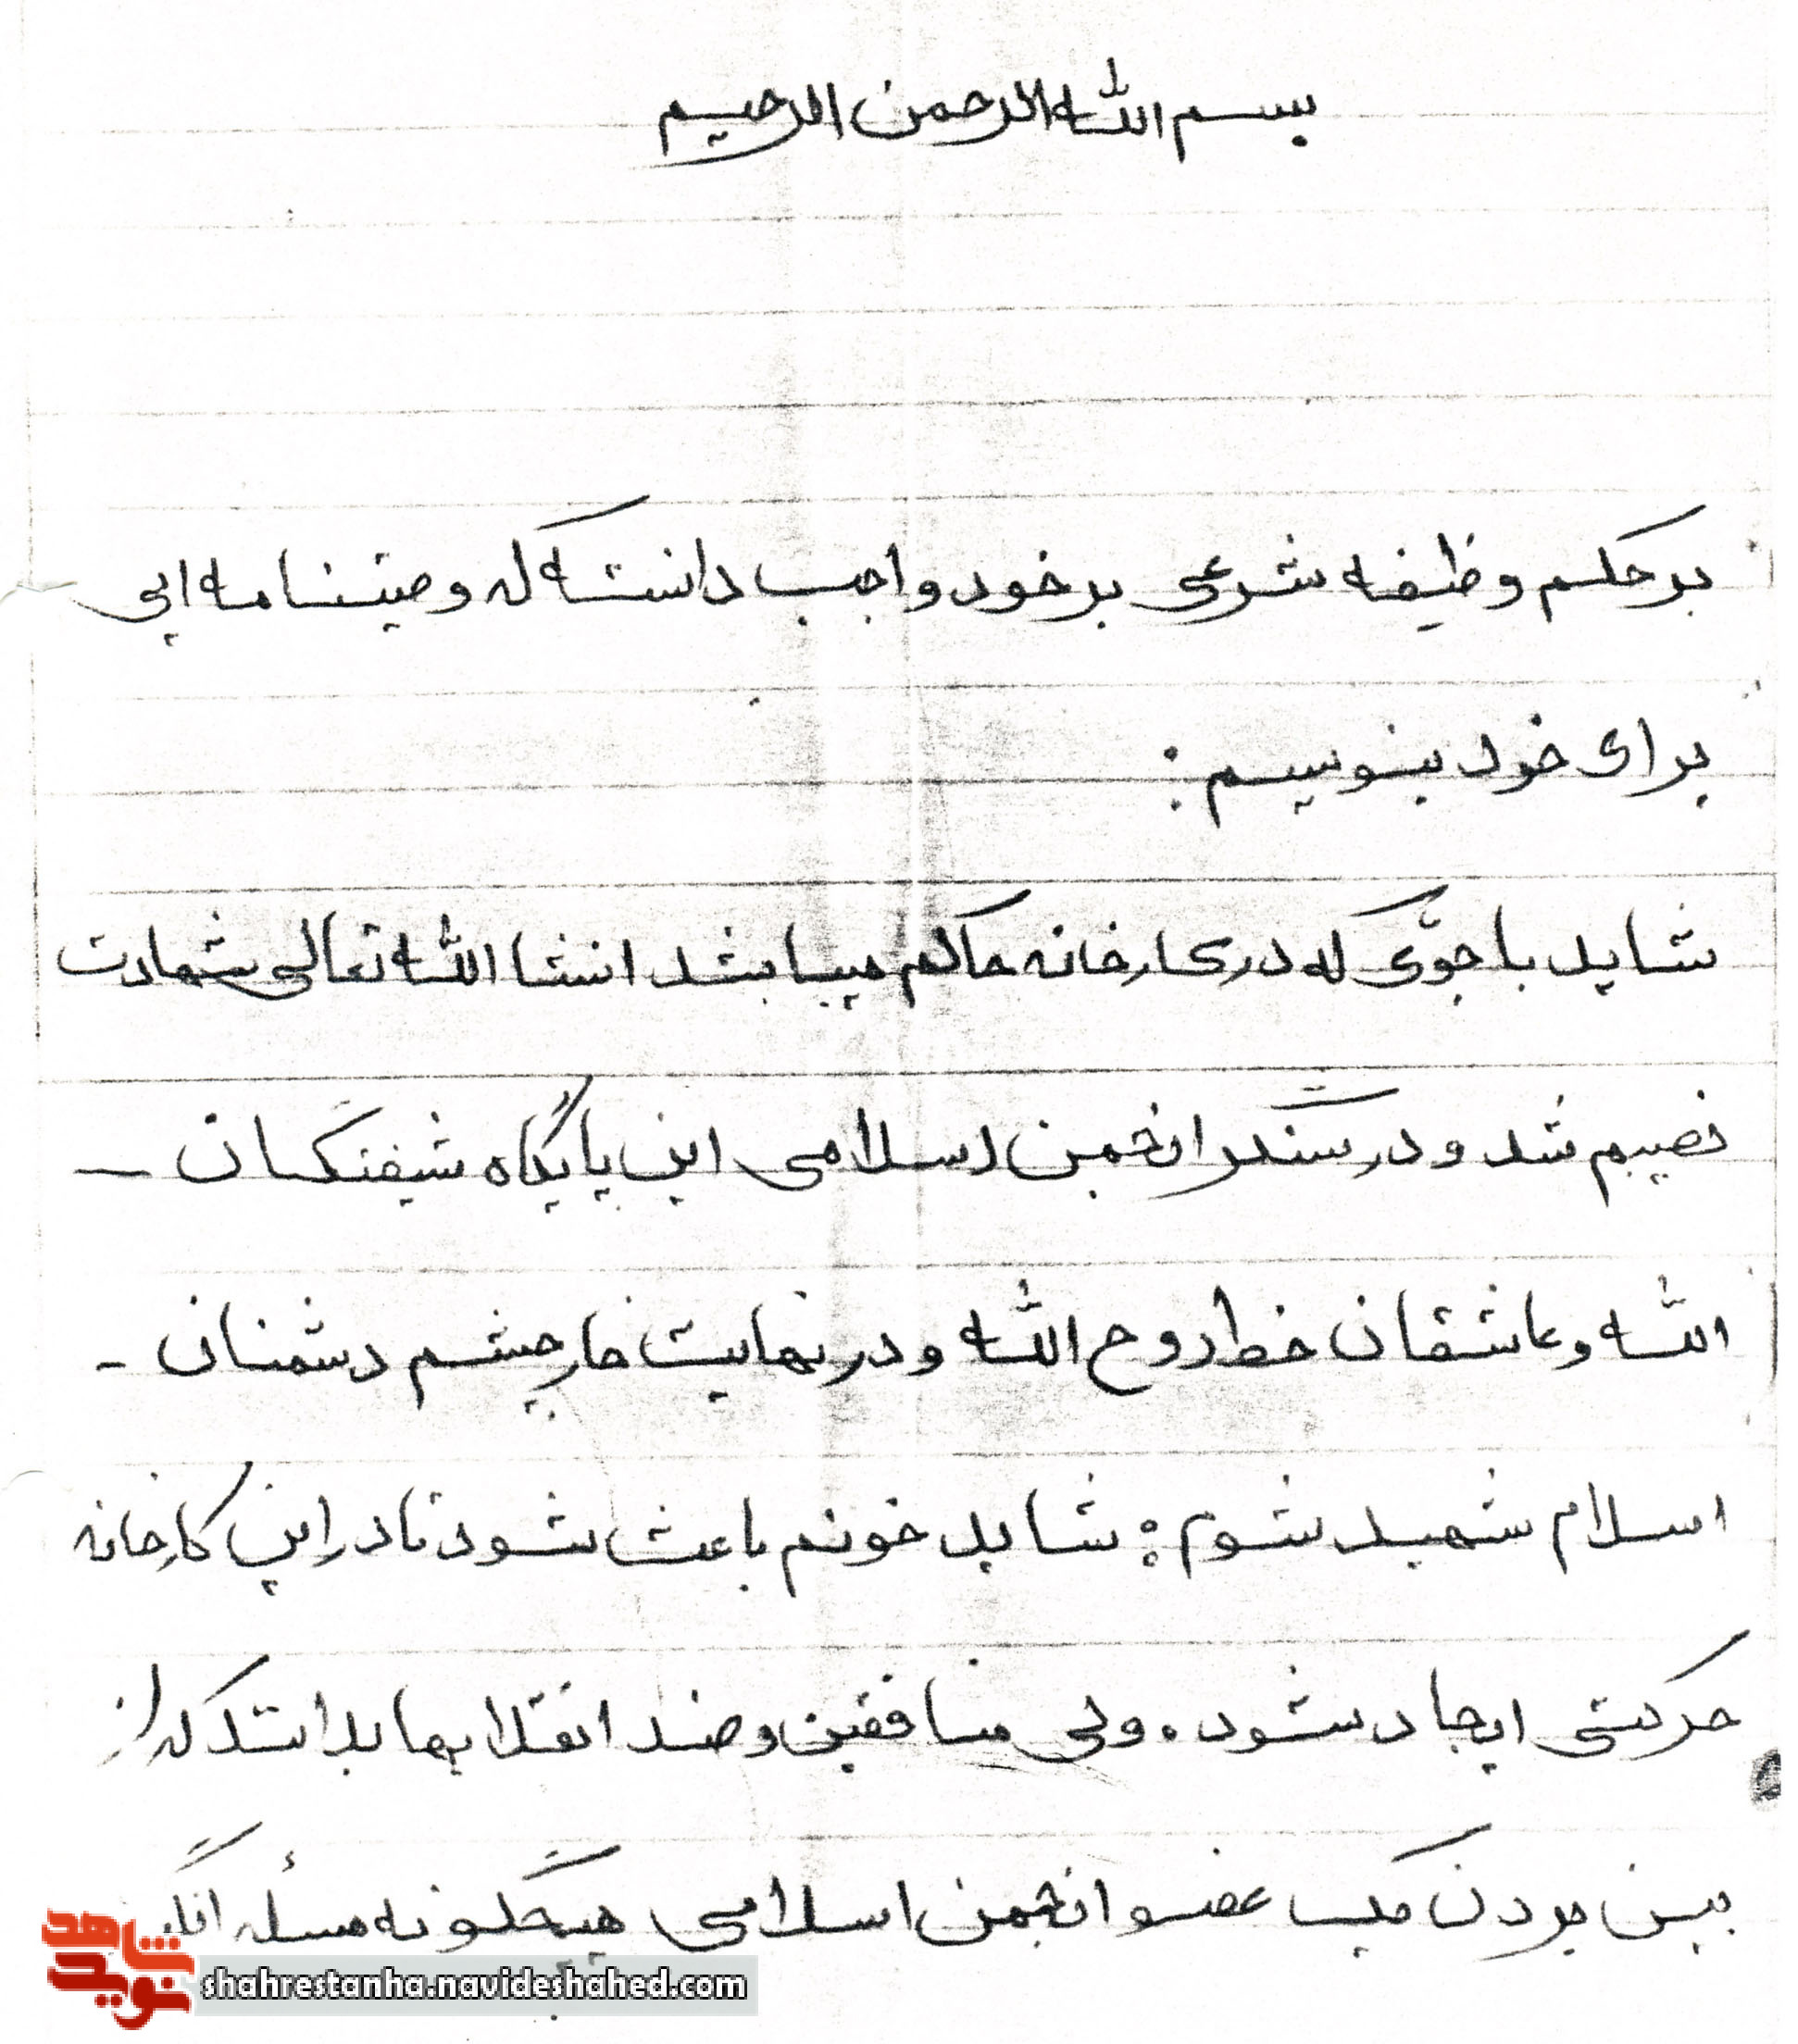 بسم الله الرحمن الرحیم
بر حکم وظیفه شرعی بر خود واجب دانسته که وصیتنامه ایی
برای خود بنویسم :
شاید با جوّی که در کارخانه حاکم میباشد انشا الله تعالی شهادت
نصیبم شد و در سنگر انجمن اسلامی این پایگاه شیفتگان –
الله و عاشقان خط روح الله و در نهایت خار چشم دشمنان -
اسلام شهید شوم ؛ شاید خونم باعث شود تا در این کارخانه
حرکتی ایجاد شود . ولی منافقین و ضد انقلابها بدانند که از
بین بردن یک عضو انجمن اسلامی هیچگونه مسئله
شاهد
نوید
shahrestanha.navideshahed.com